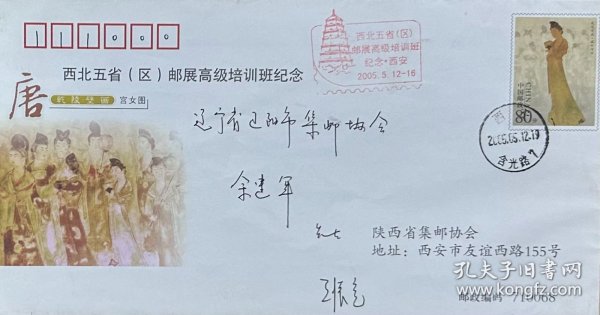 111000
西北五省（区）邮展高级培训班纪念
唐
乾陵壁画 宫女图
西北五省（区）
邮展高级培训班
纪念·西安
2005.5.12-16
中国邮政 CHINA
80分
2005.05.12.19
辽宁省辽阳市集邮协会
余建军
陕西省集邮协会
地址：西安市友谊西路155号
邮政编码 710068
孔夫子旧书网
www.kongfz.com